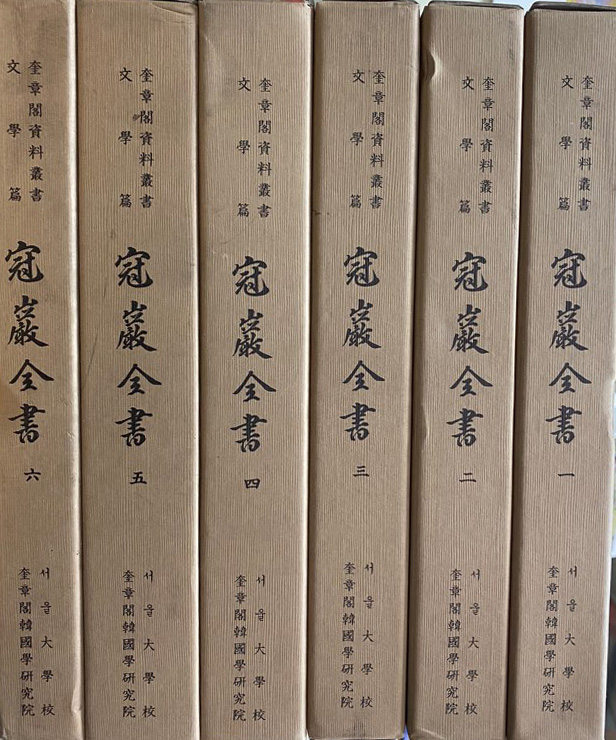 奎章閣資料叢書
文學篇
冠巖全書
一
서울大學校
奎章閣韓國學研究院
奎章閣資料叢書
文學篇
冠巖全書
二
서울大學校
奎章閣韓國學研究院
奎章閣資料叢書
文學篇
冠巖全書
三
서울大學校
奎章閣韓國學研究院
奎章閣資料叢書
文學篇
冠巖全書
四
서울大學校
奎章閣韓國學研究院
奎章閣資料叢書
文學篇
冠巖全書
五
서울大學校
奎章閣韓國學研究院
奎章閣資料叢書
文學篇
冠巖全書
六
서울大學校
奎章閣韓國學研究院